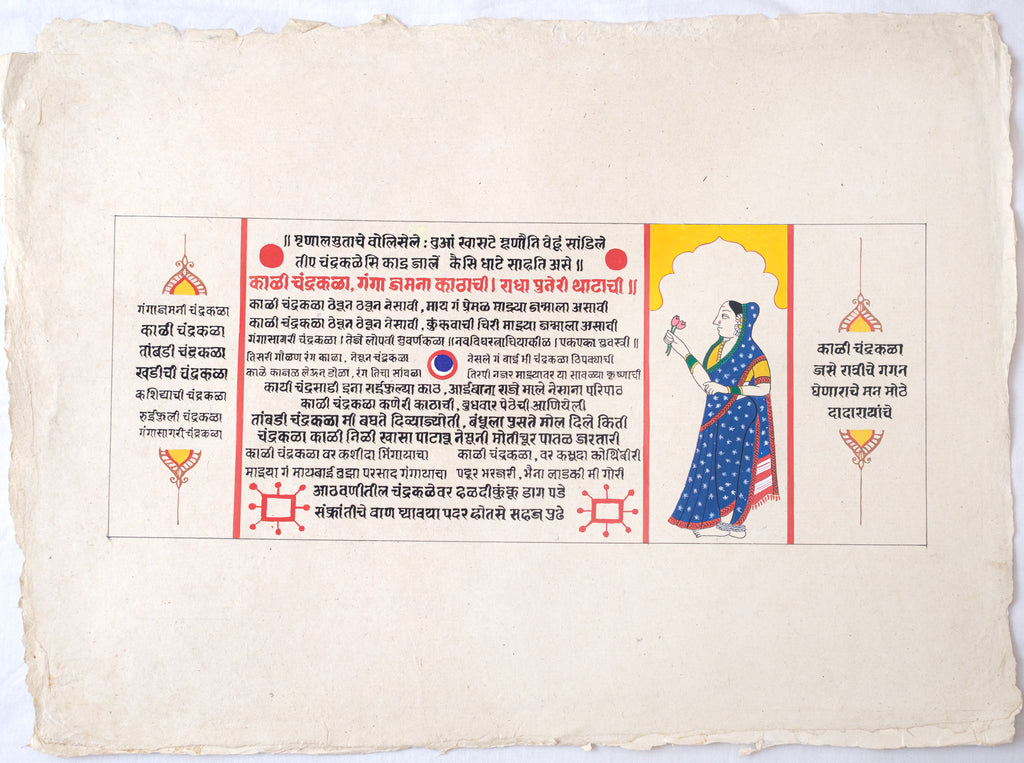 गंगाजमनी चंद्रकळा
काळी चंद्रकळा
तांबडी चंद्रकळा
खडीची चंद्रकळा
कशिद्याची चंद्रकळा
रुईफुली चंद्रकळा
गंगासागरी चंद्रकळा
॥ मृणालसुताचे वोलिसेले : सुआं खासटे म्हणौनि वेढूं सांडिले
तीए चंद्रकळेसि काइ जालें कैसि धाटे साहाति असे ॥
काळी चंद्रकळा, गंगा जमना काठाची। राधा सुतेरी थाटाची ॥
काळी चंद्रकळा ठेवून ठवून नेसावी, माय गं प्रेमळ माझ्या जन्माला असावी
काळी चंद्रकळा ठेवून ठेवून नेसावी, कुंकवाची चिरी माझ्या जन्माला असावी
गंगासागरी चंद्रकळा । तेजे लोपवी सुवर्णकळा ॥ नवविधरत्नाचियाकीळ । एकएका
तिसरी गौळण रंग काळा, नेसून चंद्रकळा नेसले गं बाई मी चंद्रकळा ठिपक्याची
काळे काजळ लेऊन डोळा, रंग तिचा सांवळा तिरपी नजर माझ्यावर या सावळ्या कृष्णाची
कायी चंद्रसाडी इना राईफुल्या काठ, आईबाना राजे माले नेसाना परिपाठ
काळी चंद्रकळा कणेरी काठाची, बुधवार पेठेची आणियेली
तांबडी चंद्रकळा मी बघते दिव्याज्योती, बंधूला पुसते मोल दिले किती
चंद्रकळा काळी निळी खासा पाटावू नेसूनी मोतीचूर पातळ जरतारी
काळी चंद्रकळा वर कशीदा भिंगायाचा काळी चंद्रकळा, वर कसूदा कोथिंबीरी
माझ्या गं मायबाई तुझा परसाद गंगायाचा पदूर भरजरी, मैना लाडकी मी गोरी
आठवणीतील चंद्रकळेवर हळदीकुंकू डाग पडे
संक्रांतीचे वाण घ्यावया पदर होतसे सहज पुढे
काळी चंद्रकळा
जसे रात्रीचे गगन
घेणाराचे मन मोठे
दादारायांचे